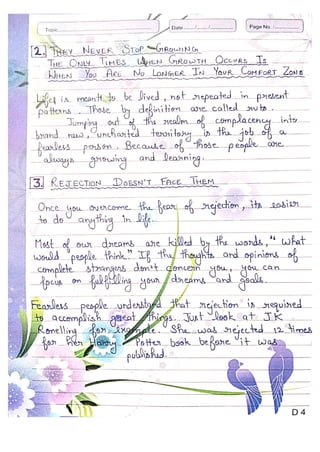 Topic
Date
Page No.
2. THEY NEVER STOP GROWING
THE ONLY TIMES WHEN GROWTH OCCURS IS
WHEN YOU ARE NO LONGER IN YOUR COMFORT ZONE
Life is meant to be lived, not repeated in present
patterns. Those by definition are called ruts.
Jumping out of this realm of complacency into
brand new, uncharted territory is the job of a
fearless person. Because of those people are
always growing and learning.
3. REJECTION DOESN'T FACE THEM
Once you overcome the fear of rejection, its easier
to do anything in life.
Most of our dreams are killed by the words, "What
would people think." If the thoughts and opinions of
complete strangers don't concern you, you can
focus on fulfilling your dreams and goals.
Fearless people understand that rejection is required
to accomplish great things. Just look at J.K
Romelling for example. She was rejected 12 times
for her Harry Potter book before it was
published.
D 4